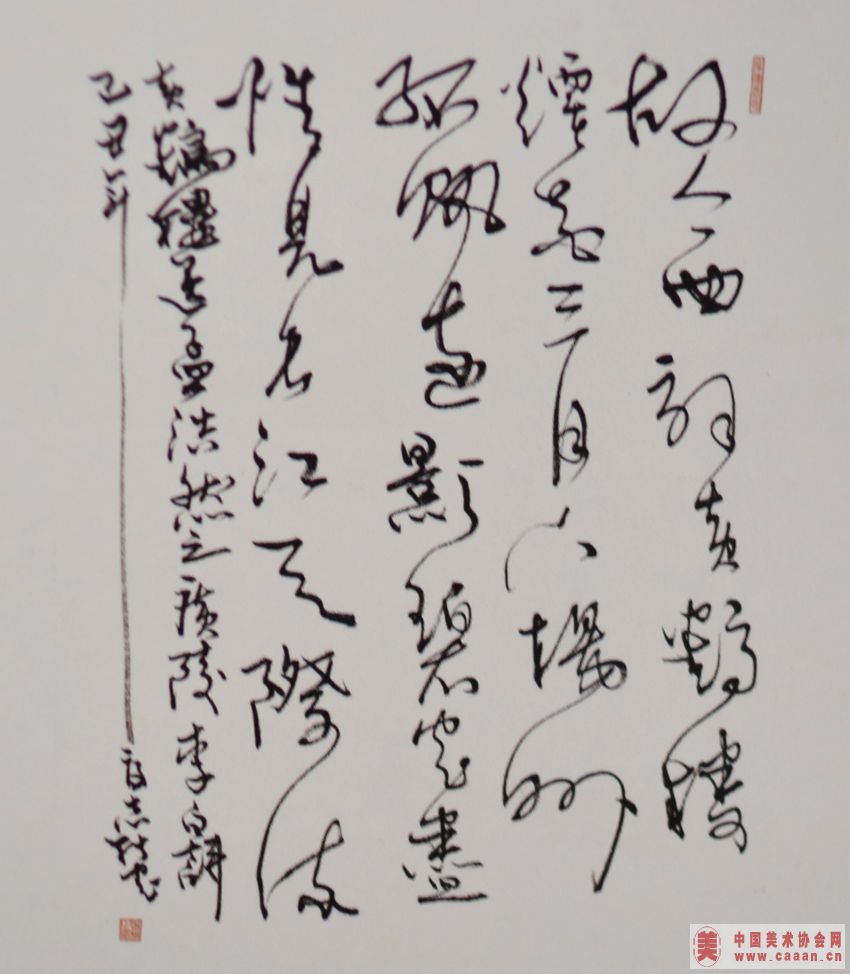 故人西辭黄鶴樓
煙花三月下揚州
孤帆遠影碧空盡
惟見長江天際流
黄鶴樓送孟浩然之廣陵李白詩
己丑年
美 中国美术协会网
www.caaan.cn